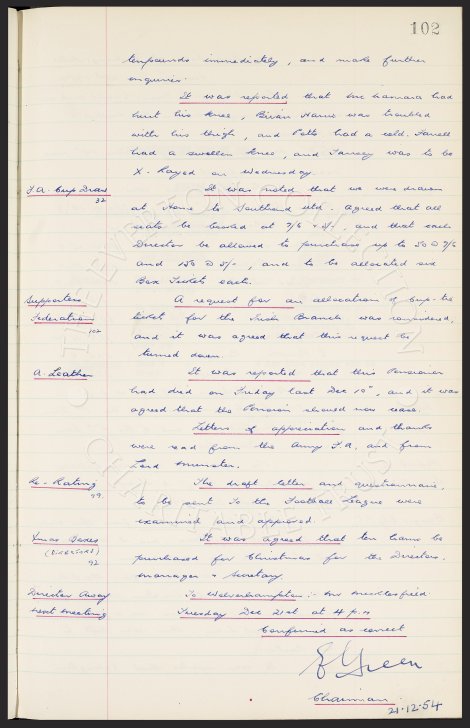 102
tenpounds immediately, and make further
enquiries.
It was reported that McNamara had
hurt his knee, Brian Harris was troubled
with his thigh, and Potts had a cold. Farrell
had a swollen knee, and Tansey was to be
X-Rayed on Wednesday.
F.A. Cup Draw
32
It was noted that we were drawn
at Home to Southend Utd. Agreed that all
seats be booked at 7/6 & 5/-, and that each
Director be allowed to purchase up to 50 @ 7/6
and 150 @ 5/-, and to be allocated six
Box Tickets each.
Supporters
Federation
102
A request for an allocation of Cup-tie
ticket for the Irish Branch was considered,
and it was agreed that this request be
turned down.
A. Leather
It was reported that this Pensioner
had died on Friday last Dec 10th, and it was
agreed that the Pension should now cease.
Letters of appreciation and thanks
were read from the Army F.A. and from
Lord
Re-Rating
99
The draft letter and questionnaire,
to be sent to the Football League were
examined and approved.
Xmas Boxes
(DIRECTORS)
92
It was agreed that ten hams be
purchased for Christmas for the Directors,
Manager & Secretary.
Director Away
To Wolverhampton:- Mr Micklesfield
Next Meeting
Tuesday Dec 21st at 4 p.m
Confirmed as correct
E Green
Chairman.
21.12.54
THE EVERTON COLLECTION
CHARITABLE TRUST